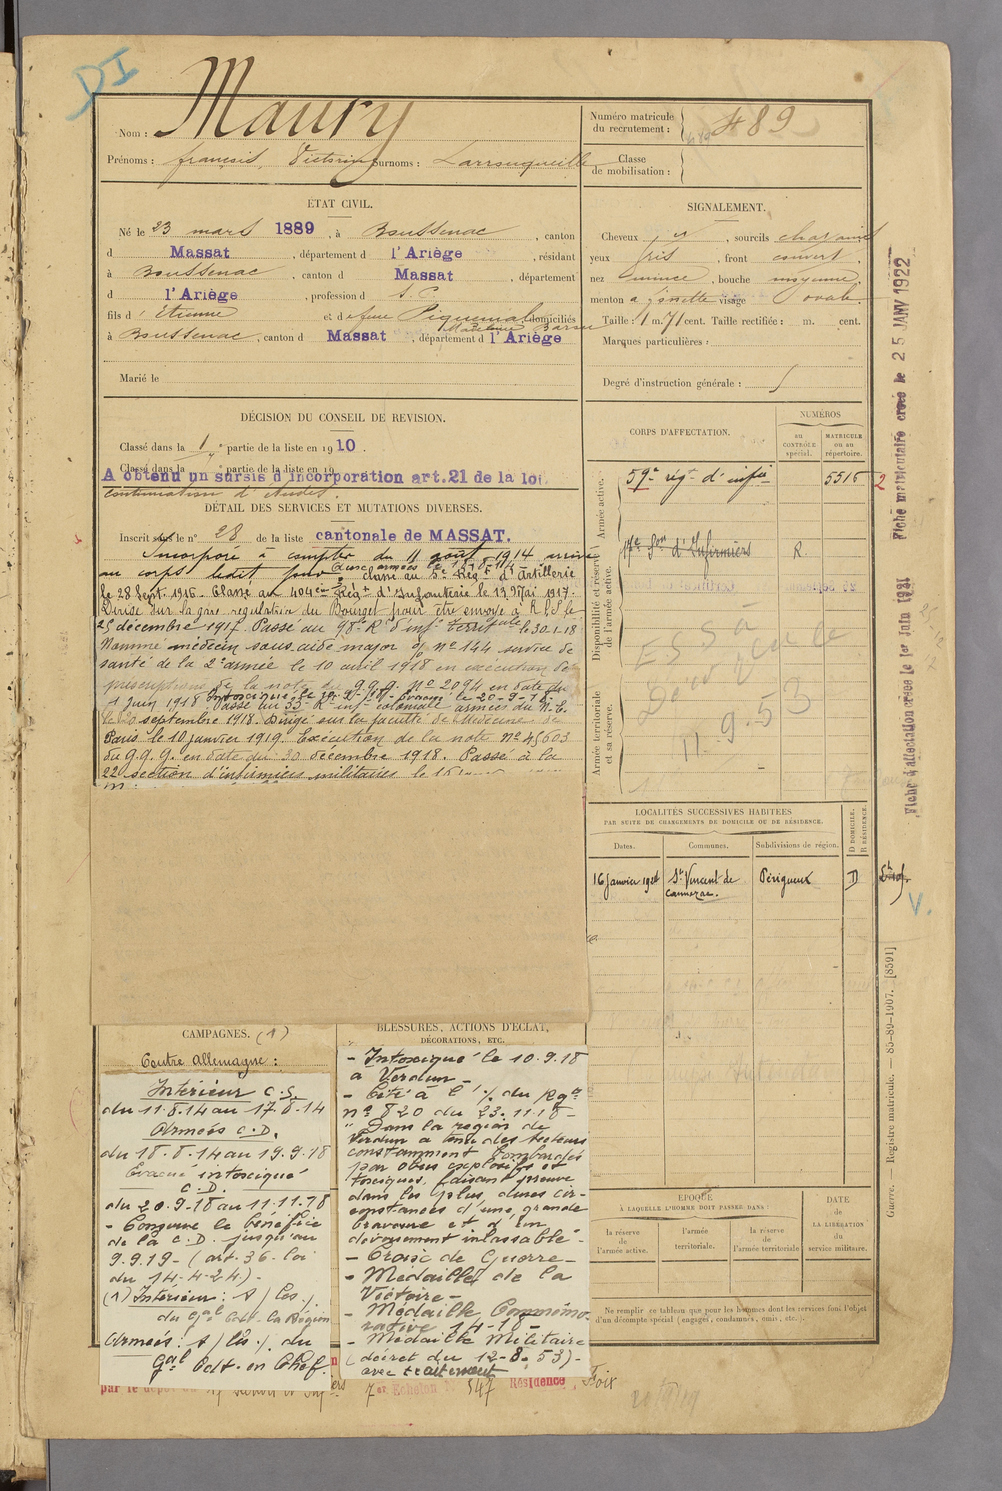 DI
Nom : Maury
Prénoms : françois, Victorin Surnoms :
Numéro matricule du recrutement : 489
Classe de mobilisation :
ÉTAT CIVIL.
Né le 23 mars 1889, à Boussenac, canton
d Massat, département d l'Ariège, résidant
à Boussenac, canton d Massat, département
d l'Ariège, profession d S. C.
fils d' Étienne et de feue Piquemal domiciliés
Madeleine
à Boussenac, canton d Massat, département d l'Ariège
Marié le
SIGNALEMENT.
Cheveux, sourcils
yeux gris, front couvert.
nez mince, bouche moyenne
menton à fossette visage ovale.
Taille : 1 m. 71 cent. Taille rectifiée : m. cent.
Marques particulières :
Degré d'instruction générale :
DÉCISION DU CONSEIL DE REVISION.
Classé dans la 1e partie de la liste en 1910.
Classé dans la partie de la liste en 19
A obtenu un sursis d'incorporation art.21 de la loi
continuation d'études.
DÉTAIL DES SERVICES ET MUTATIONS DIVERSES.
Inscrit sous le n° 28 de la liste cantonale de MASSAT.
Incorporé à compter du 11 août 1914 arrivé
au corps ledit jour
Aux armées le 18-8-14
Classé au 5e Régt d'Artillerie
le 28 Sept. 1916. Classé au 404e Régt d'Infanterie le 13 Mai 1917.
Dirigé sur la gare régulatrice du Bourget pour être envoyé à
25 décembre 1917. Passé au 98e R. d'inf. territoriale le 30-1-18
Nommé médecin sous aide major n° 144 service de
santé de la 2e armée le 10 avril 1918 en exécution des
prescriptions de la note du G.Q.G. N° 2094 en date du
1 juin 1918. Passé au 33e R. inf. coloniale armées du N.-E.
Intoxiqué le 10-9-18. Évacué le 20-9-18.
le 20 septembre 1918. Dirigé sur la faculté de Médecine de
Paris le 10 janvier 1919. Exécution de la note N° 45603
du G.Q.G. en date du 30 décembre 1918. Passé à la
22 section d'infirmiers militaires le
CORPS D'AFFECTATION.
NUMÉROS
au CONTRÔLE spécial.
MATRICULE ou au répertoire.
Armée active.
59e régt d'infie 5515 2
Disponibilité et réserve de l'armée active.
17e Son d'Infirmiers R.
Armée territoriale et sa réserve.
11.9.53
LOCALITÉS SUCCESSIVES HABITÉES
PAR SUITE DE CHANGEMENTS DE DOMICILE OU DE RÉSIDENCE.
Dates. Communes. Subdivisions de région. D DOMICILE. R RÉSIDENCE.
16 janvier St Vincent de Périgueux D
CAMPAGNES. (1)
Contre Allemagne :
Intérieur C.S.
du 11.8.14 au 17.8.14
Armées C.D.
du 18.8.14 au 19.9.18
Evacué intoxiqué
C.D.
du 20.9.18 au 11.11.18
- Conserve le bénéfice
de la C.D. jusqu'au
9.9.19 - (art. 36. loi
du 14-4-24) -
(1) Intérieur : s/ les
du Gal Cdt. la Région
Armées : s/ les du
Gal Cdt. en Chef.
BLESSURES, ACTIONS D'ÉCLAT, DÉCORATIONS, ETC.
- Intoxiqué le 10.9.18
à Verdun -
- Cité à l'o/. du Rgt
n° 820 du 23.11.18 -
" Dans la région de
Verdun a tenu des secteurs
constamment bombardés
par obus explosifs et
toxiques, faisant preuve
dans les plus dures cir-
constances d'une grande
bravoure et d'un
dévouement inlassable -
- Croix de Guerre -
- Médaille de la
Victoire -
- Médaille Commémo-
rative 14-18 -
- Médaille Militaire
(décret du 12-8-53) -
avec traitement
ÉPOQUE
À LAQUELLE L'HOMME DOIT PASSER DANS :
la réserve de l'armée active.
l'armée territoriale.
la réserve de l'armée territoriale
DATE DE LA LIBÉRATION du service militaire.
Ne remplir ce tableau que pour les hommes dont les services font l'objet
d'un décompte spécial (engagés, condamnés, omis, etc.).
par le dépôt Echelon 547 Résidence, Foix
Fiche matriculaire créée le 25 JANV 1922
Fiche d'affectation créée le 1er Juin 1931
V.
Guerre. — Registre matricule. — 85-89-1907. [8591]